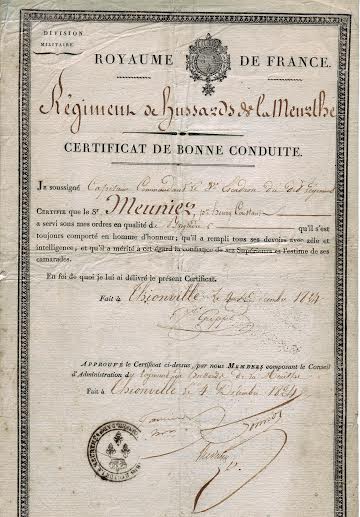 DIVISION
MILITAIRE
ROYAUME DE FRANCE.
Régiment de hussards de la Meurthe
CERTIFICAT DE BONNE CONDUITE.
Je soussigné Capitaine Commandant le Escadron du dit Régiment
CERTIFIE que le Sr. Meunier,
a servi sous mes ordres en qualité de qu'il s'est
toujours comporté en homme d'honneur; qu'il a rempli tous ses devoirs avec zèle et
intelligence, et qu'il a mérité à cet égard la confiance de ses Supérieurs et l'estime de ses
camarades.
En foi de quoi je lui ai délivré le présent Certificat.
Fait à Thionville le 4 Décembre 1824
APPROUVÉ le Certificat ci-dessus, par nous MEMBRES composant le Conseil
d'Administration du régiment des hussards de la Meurthe
Fait à Thionville le 4 Décembre 1824